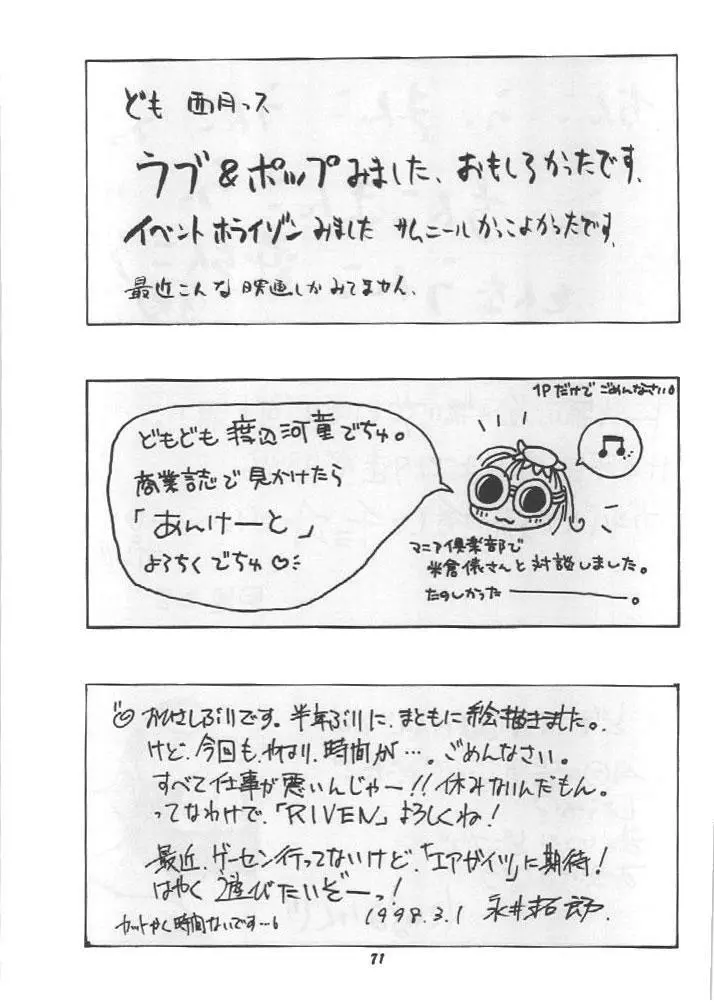 ども 西月っス
ラブ&ポップみました、おもしろかったです、
イベントホライゾンみました サムニールかっこよかったです、
最近こんな映画しかみてません、
1Pだけで ごめんなさい
どもども 渡辺河童でちゅ。
商業誌で見かけたら
「あんけーと」
よろちくでちゅ♡
マニア倶楽部で
米倉俵さんと対談しました。
たのしかった―――。
おひさしぶりです。半年ぶりに、まともに絵描きました。
けど、今回も、やはり、時間が…。ごめんなさい。
すべて仕事が悪いんじゃー!!休みないんだもん。
ってなわけで、「RIVEN」よろしくね!
最近、ゲーセン行ってないけど、「エアガイツ」に期待!
はやく遊びたいぞーっ!
1998.3.1 永井拓郎.
カットやく時間ないです…。
71